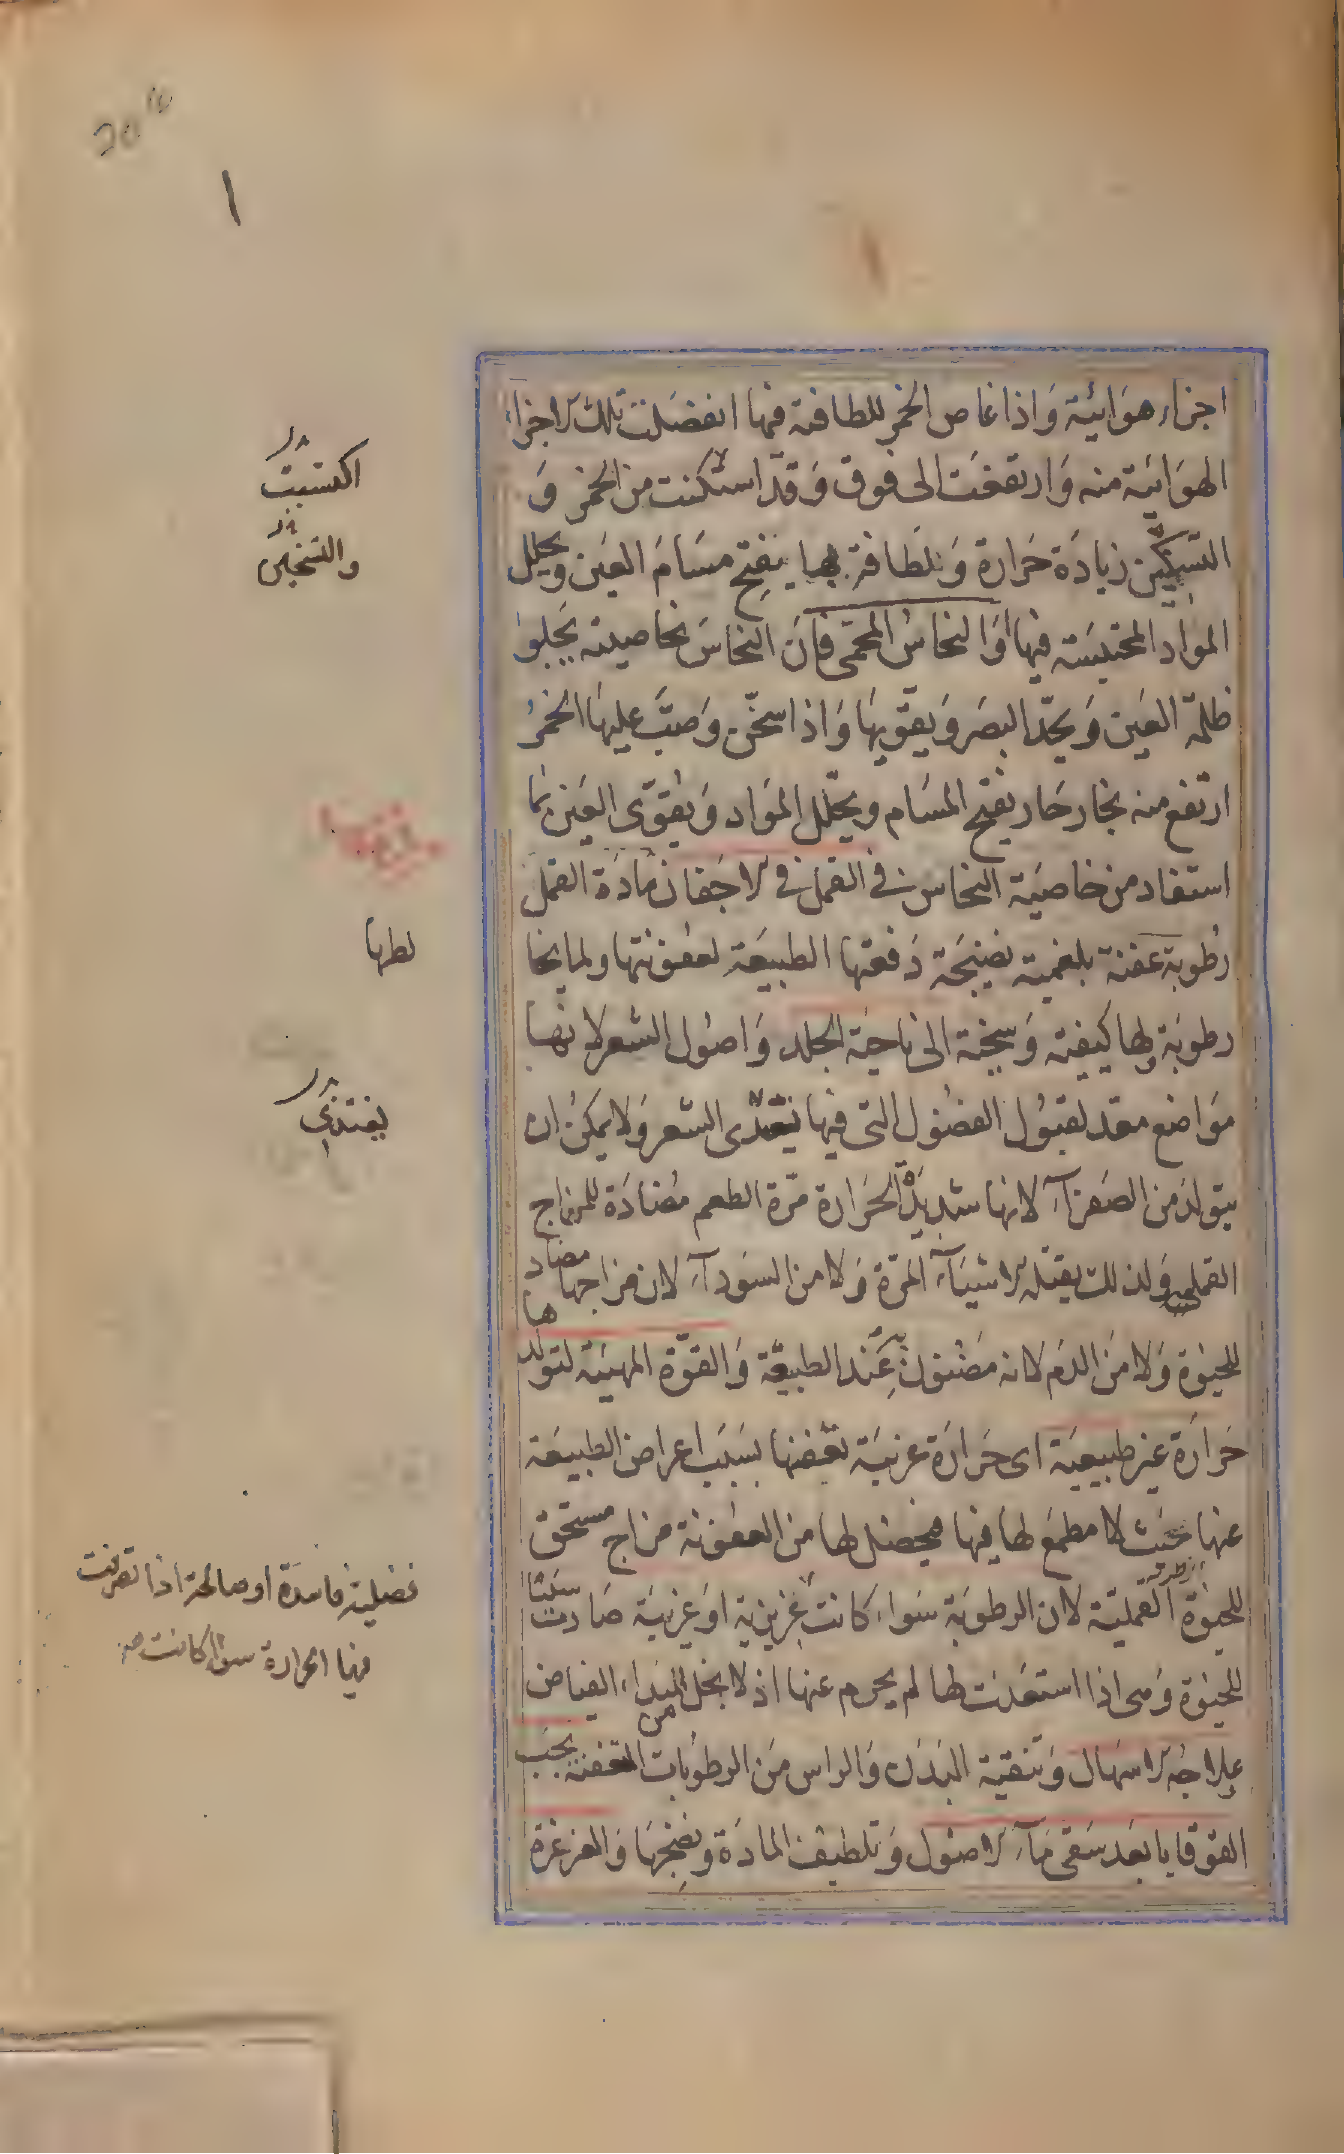 اجزاء هوائية وَاذا غاص الخمر للطافته فيها انفصَلت تلك الاجزاء
الهوَائية منه وَارتفعَت الى فوق وَقد استكنت من الخمر وَ
التسكين زيادَة حَرارة وَلطافة بها يفتح مسَامَ العَين ويحلل
المواد المحتبسَة فيها اوَالنحاسُ المحمّى فانَ النحاسَ بخاصيته يَجلوا
ظلمة العَين وَيحدّ البصَر وَيقوّيهَا وَاذا سخّن وَصبَّ عليهَا الخمرُ
ارتفع منه بخار حَار يفتح المسَام ويحلّل الموَاد وَيقوّى العَين بما
استفاد من خاصيَة النحاس فى القمل فى الاجَفان مَادَة القمل
رُطوبة عَفنة بلغمية نضيجَة دَفعتها الطبيعَة لعفونتها ولما يخا
رطوبَة ولها كيفية وَسخية الى ناحيَة الجلد وَاصُول الشعر لانها
مَواضع معَد لقبُول الفضُول التى فيها يتغذّى الشعر وَلا يمكنُ ان
يتولدَ من الصَفرَآء لانها شديدة الحَرارة مرّة الطعم مُضادَة للمزاج
القملى وَلذلك يقتله الاشيَآء المرّة وَلا من السَودآء لان مزاجها مضاد
ها
للحيٰوة وَلا منَ الدَم لانه مَضنون به عَند الطبيعَة وَالقوّة المهيَئة لتولد
حَرارَة غير طبيعيَة اى حَرَارَة غريبَة تعفنها بسَبَب اعراض الطبيعَة
عنها حَيث لا مطمَع لها فيها فيحصل لها من العفونة مزاج مستحق
للحيٰوة القمليَة لان الرطوبَة سَواء كانت غريزية اوَ غريبَة صَارت سَببًا
للحيٰوة وَهى اذا استعَدت لها لم يحرم عنها اذ لا بخل من المبداء الفياض
علاجُه الاسهَال وَتنقية البَدَن وَالراس منَ الرطوبَات المتعفنة بحَب
القوقايا بعَد سَقى مَآء الاصُول وَتلطيف المادَة وَنضجهَا وَالغرغرة
اكتسَبت
والتسخين
لطها
يغتذى
فضلية فاسدَة او صالحة اذا تصرفت
فيها الحرارة سواء كانت